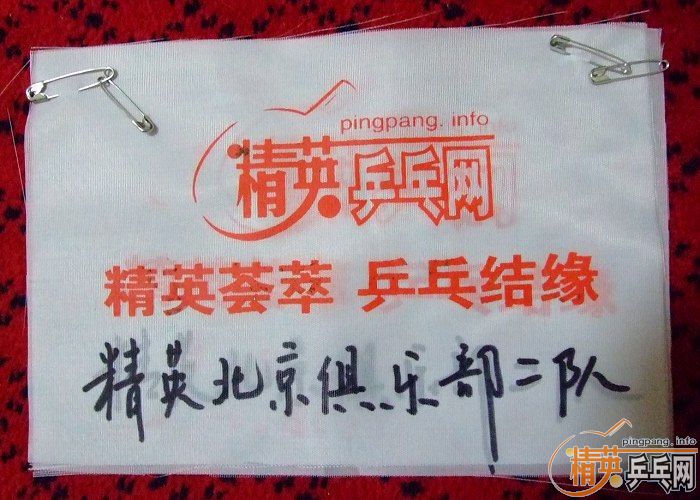 pingpang. info
精英乒乓网
精英荟萃 乒乓结缘
精英北京俱乐部二队
pingpang.info
精英乒乓网